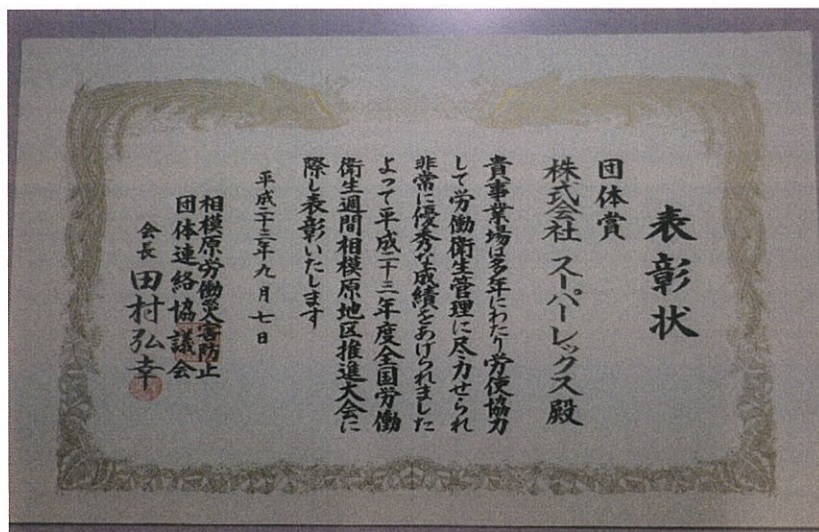 表彰状
団体賞
株式会社 スーパーレックス殿
貴事業場は多年にわたり労使協力
して労働衛生管理に尽力せられ
非常に優秀な成績をあげられました
よって平成二十三年度全国労働
衛生週間相模原地区推進大会に
際し表彰いたします
平成二十三年九月七日
相模原労働災害防止
団体連絡協議会
会長 田村弘幸